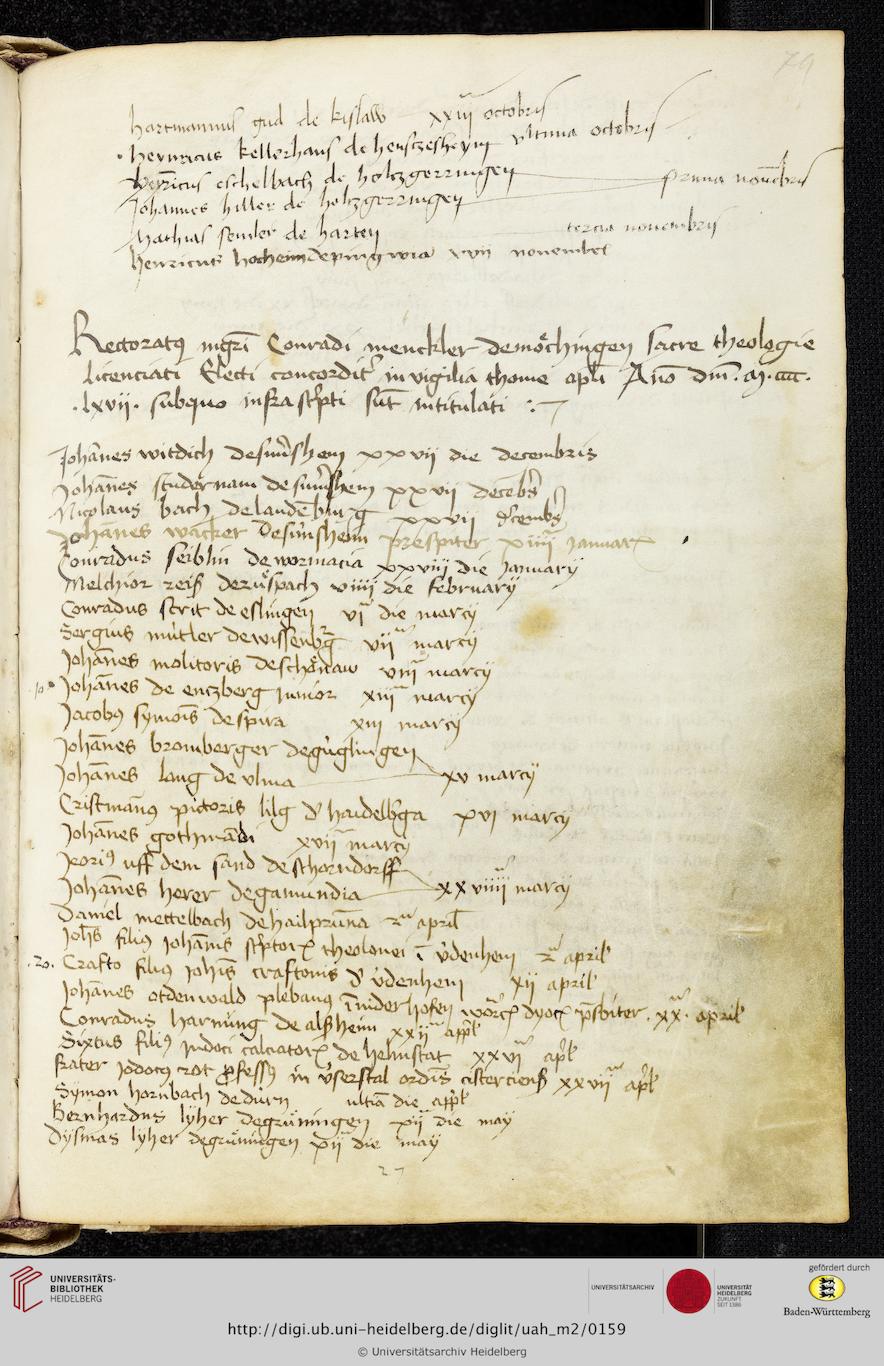 79
hartmannus gud de kislaw xxiij octobris
henricus kellerhans de hentzesheym ultima octobris
henricus eschelbach de holtzgerringen prima novembris
Johannes hiller de holtzgerringen
Mathias semler de harten tercia novembris
henricus hocheim de xvij novembris
Rectoratus mgri Conradi menckler de möchingen sacre theologie
licenciati Electi concorditer in vigilia thome apli Ano dni .m.cccc.
.lxvij. sub quo infrascripti sunt intitulati :
Johannes witdich de xxvij die decembris
Johannes de xxvij decembris
Nicolaus bach de laudenburg xxvij decembris
Johannes wacker de sunsheim prespiter xiiij Januarii
Conradus seiblin de wormacia xxviij die January
Melchior reiß de ruspach viiij die february
Conradus strit de eslingen vi die marcij
Sergius mutler de wissenburg vij marcij
Johannes molitoris de schonaw viij marcij
10 Johannes de entzberg iunior xiij marcij
Jacobus symonis de spira xiij marcij
Johannes bromberger de guglingen
Johannes lang de ulma xv marcij
Cristmanus pictoris lilg de haidelberga xvj marcij
Johannes gothmadi xvij marcij
Jeorius uff dem sand de schorndorff
Johannes herer de gamundia xxviiij marcij
Daniel mettelbach de hailpruna 2a april
Johes filius Johannis scriptoris theolonei in udenheim 2a april
.20. Crafto filius Johis craftonis de udenheim xij april
Johannes otdenwald plebanus in niderhofen worm dyoc prsbiter . xx . april
Conradus harnung de alßheim xxij april
Sixtus filius Judoci calciatoris de helmstat xxvj april
frater Jodocus rot professus in userstal ordinis cisterciens xxvij april
Symon hornbach de durn ultima die april
Bernhardus lyher de gruningen xij die may
Dysmas lyher de gruningen xij die may
27
UNIVERSITÄTS-
BIBLIOTHEK
HEIDELBERG
UNIVERSITÄTSARCHIV
UNIVERSITÄT
HEIDELBERG
ZUKUNFT
SEIT 1386
gefördert durch
Baden-Württemberg
http://digi.ub.uni-heidelberg.de/diglit/uah_m2/0159
© Universitätsarchiv Heidelberg